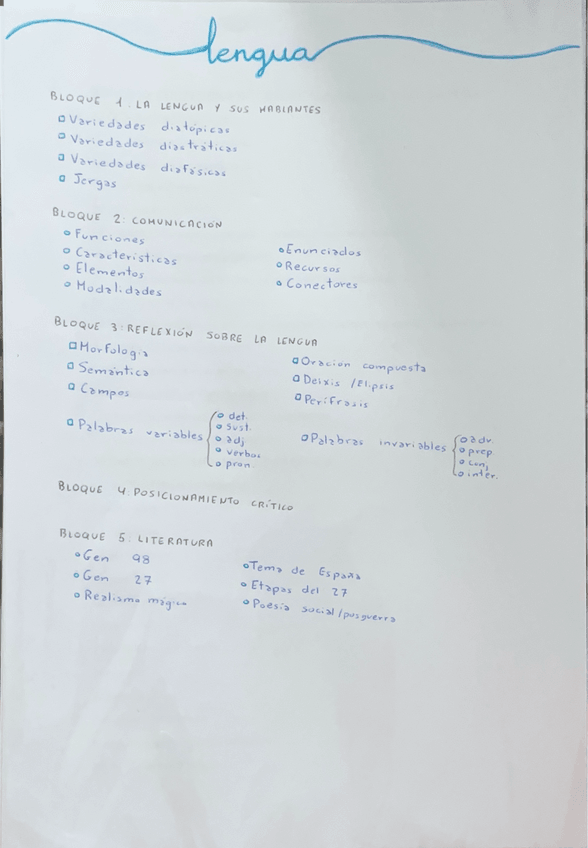 lengua
BLOQUE 1: LA LENGUA Y SUS HABLANTES
Variedades diatópicas
Variedades diastráticas
Variedades diafásicas
Jergas
BLOQUE 2: COMUNICACIÓN
Funciones
Características
Elementos
Modalidades
Enunciados
Recursos
Conectores
BLOQUE 3: REFLEXIÓN SOBRE LA LENGUA
Morfología
Semántica
Campos
Oracion compuesta
Deixis / Elipsis
Perífrasis
Palabras variables
det.
sust.
adj
verbos
pron.
Palabras invariables
adv.
prep.
conj
inter.
BLOQUE 4. POSICIONAMIENTO CRÍTICO
BLOQUE 5: LITERATURA
Gen 98
Gen 27
Realismo mágico
Tema de España
Etapas del 27
Poesía social/posguerra